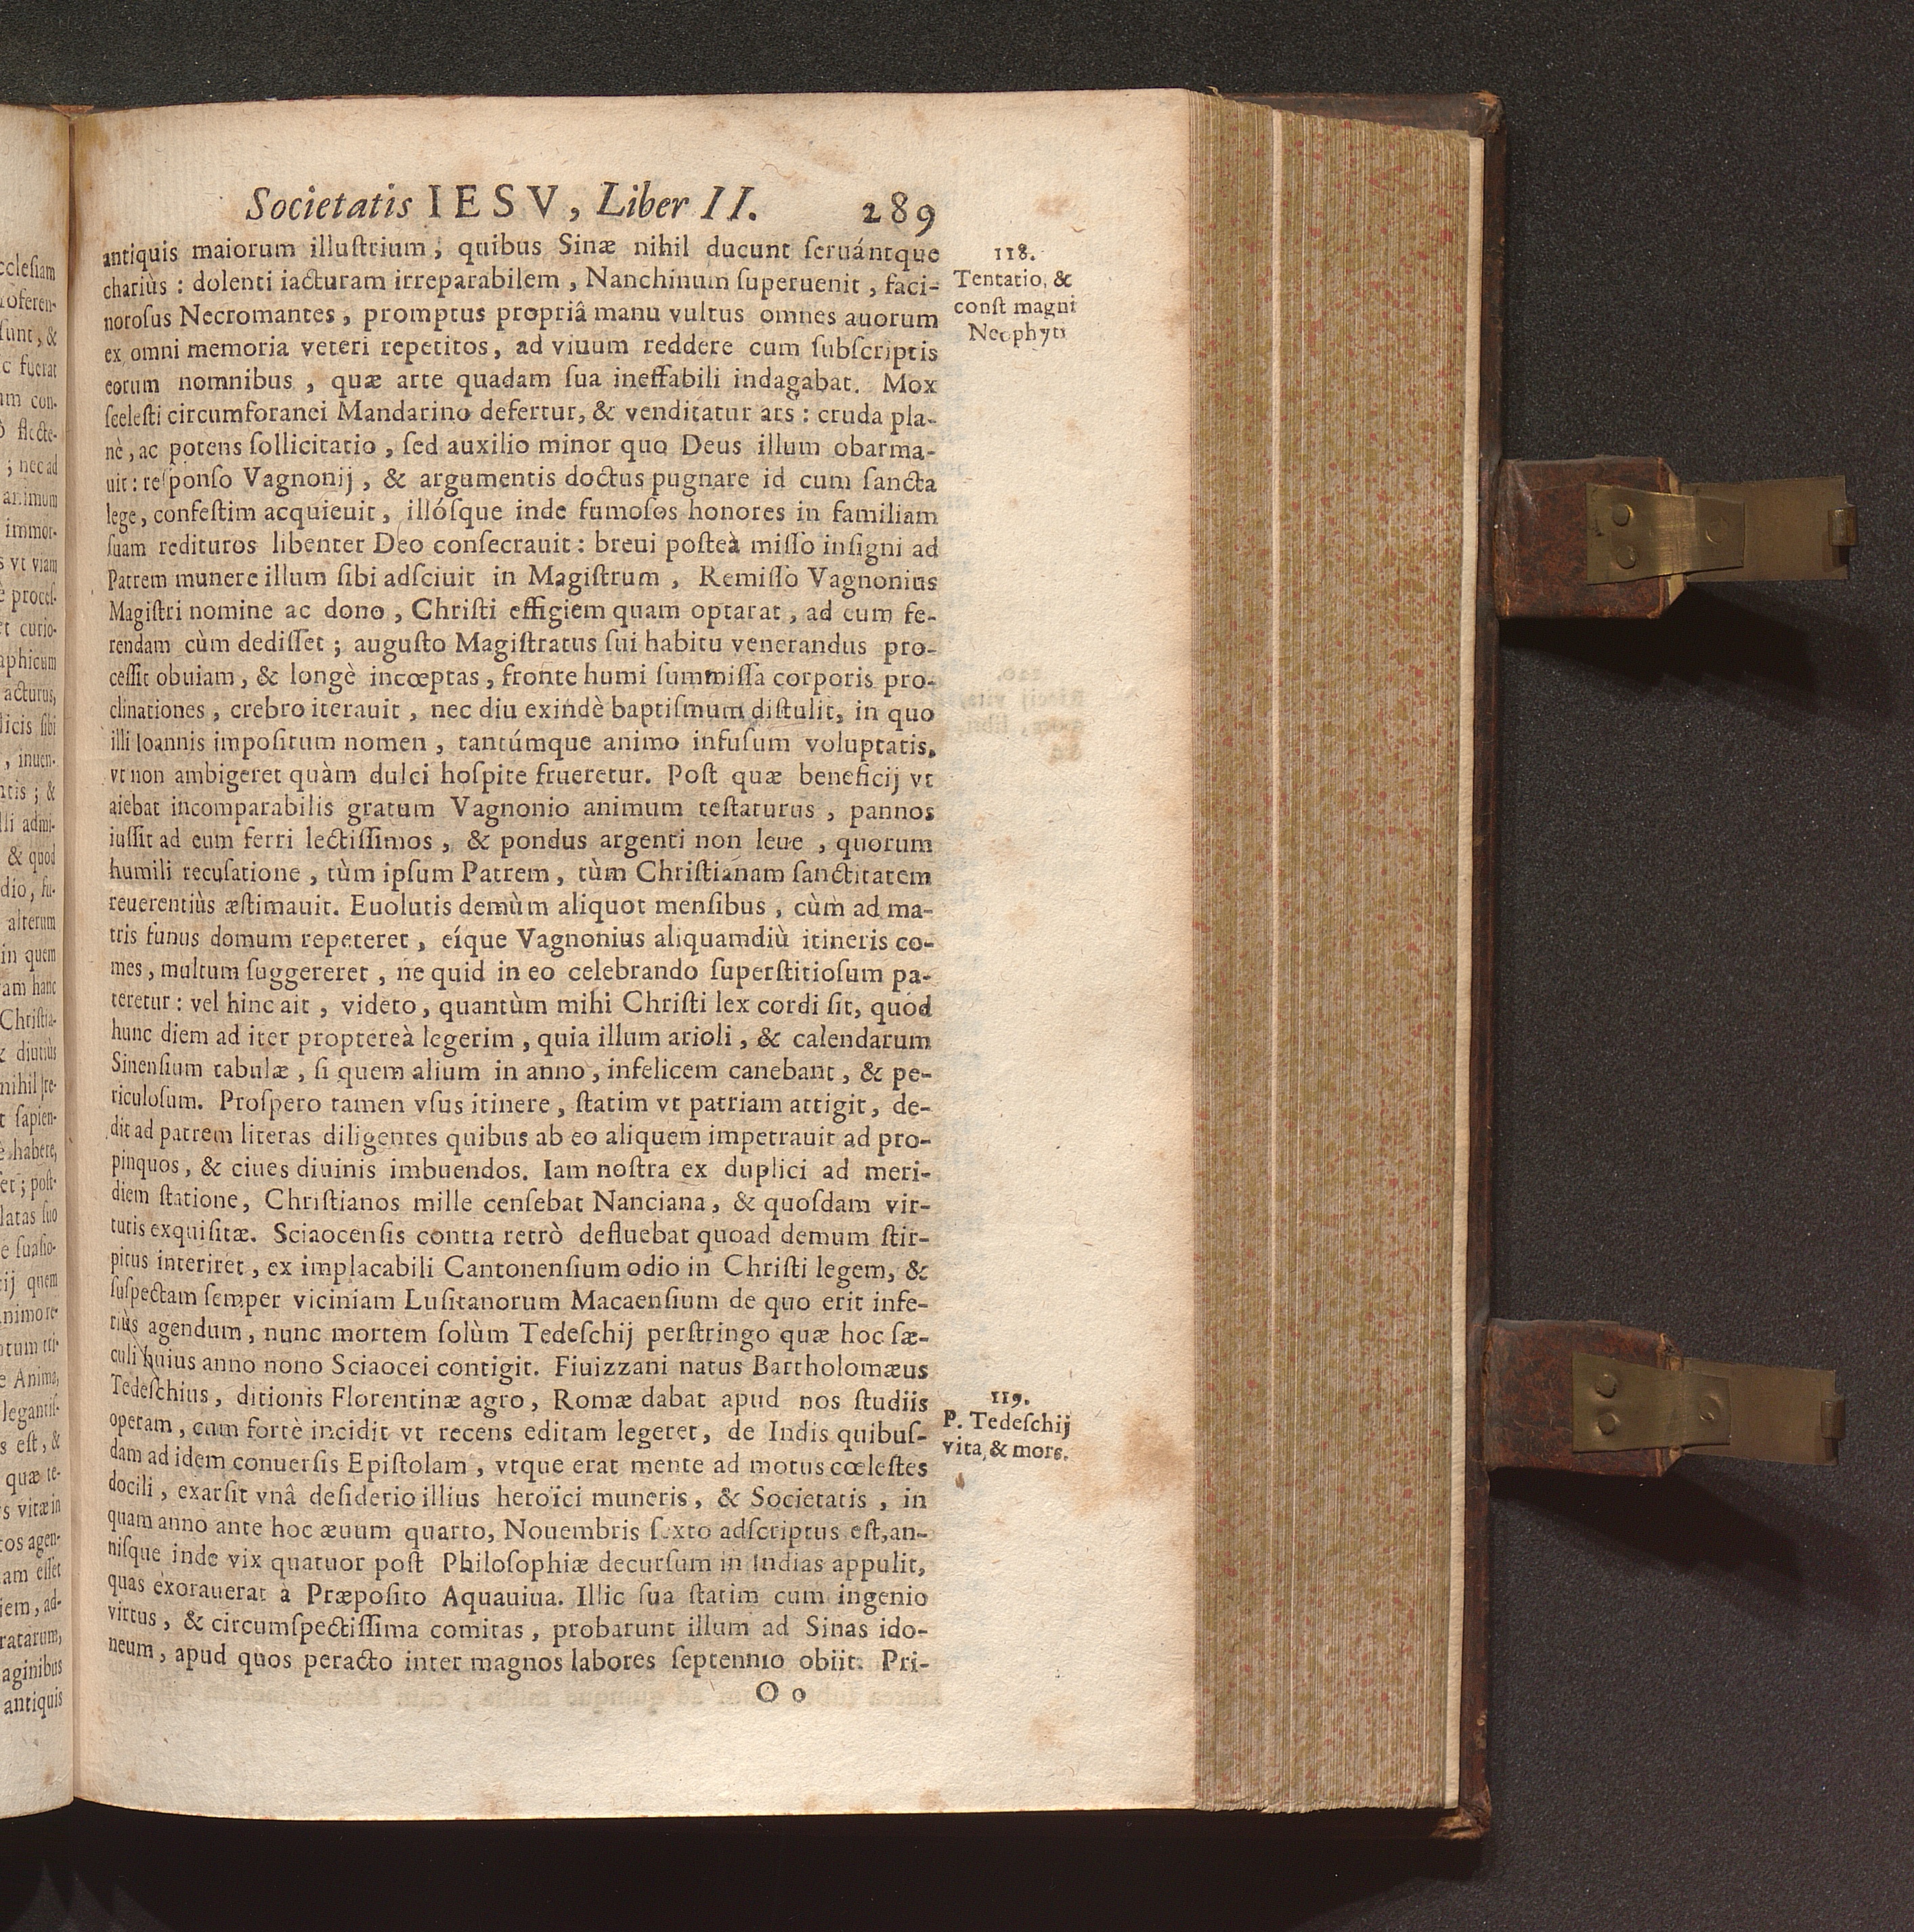 Societatis IESV, Liber II. 289
antiquis maiorum illustrium, quibus Sinæ nihil ducunt seruántque
chariùs: dolenti iacturam irreparabilem, Nanchinum superuenit, faci-
norosus Necromantes, promptus propriâ manu vultus omnes auorum
ex omni memoria veteri repetitos, ad viuum reddere cum subscriptis
eorum nomnibus, quæ arte quadam sua ineffabili indagabat. Mox
scelesti circumforanei Mandarino defertur, & venditatur ars: cruda pla-
nè, ac potens sollicitatio, sed auxilio minor quo Deus illum obarma-
uit: responso Vagnonij, & argumentis doctus pugnare id cum sancta
lege, confestim acquieuit, illósque inde fumosos honores in familiam
suam redituros libenter Deo consecrauit: breui posteà misso insigni ad
Patrem munere illum sibi adsciuit in Magistrum, Remisso Vagnonius
Magistri nomine ac dono, Christi effigiem quam optarat, ad eum fe-
rendam cùm dedisset; augusto Magistratus sui habitu venerandus pro-
cessit obuiam, & longè incœptas, fronte humi summissa corporis pro-
clinationes, crebro iterauit, nec diu exindè baptismum distulit, in quo
illi Ioannis impositum nomen, tantúmque animo infusum voluptatis,
vt non ambigeret quàm dulci hospite frueretur. Post quæ beneficij vt
aiebat incomparabilis gratum Vagnonio animum testaturus, pannos
iussit ad eum ferri lectissimos, & pondus argenti non leue, quorum
humili recusatione, tùm ipsum Patrem, tùm Christianam sanctitatem
reuerentiùs æstimauit. Euolutis demùm aliquot mensibus, cùm ad ma-
tris funus domum repeteret, eíque Vagnonius aliquamdiù itineris co-
mes, multum suggereret, ne quid in eo celebrando superstitiosum pa-
teretur: vel hinc ait, videto, quantùm mihi Christi lex cordi sit, quod
hunc diem ad iter proptereà legerim, quia illum arioli, & calendarum
Sinensium tabulæ, si quem alium in anno, infelicem canebant, & pe-
riculosum. Prospero tamen vsus itinere, statim vt patriam attigit, de-
dit ad patrem literas diligentes quibus ab eo aliquem impetrauit ad pro-
pinquos, & ciues diuinis imbuendos. Iam nostra ex duplici ad meri-
diem statione, Christianos mille censebat Nanciana, & quosdam vir-
tutis exquisitæ. Sciaocensis contra retrò defluebat quoad demum stir-
pitus interiret, ex implacabili Cantonensium odio in Christi legem, &
suspectam semper viciniam Lusitanorum Macaensium de quo erit infe-
riùs agendum, nunc mortem solùm Tedeschij perstringo quæ hoc sæ-
culi huius anno nono Sciaocei contigit. Fiuizzani natus Bartholomæus
Tedeschius, ditionis Florentinæ agro, Romæ dabat apud nos studiis
operam, cum fortè incidit vt recens editam legeret, de Indis quibus-
dam ad idem conuersis Epistolam, vtque erat mente ad motus cœlestes
docili, exarsit vnâ desiderio illius heroïci muneris, & Societatis, in
quam anno ante hoc æuum quarto, Nouembris sexto adscriptus est, an-
nisque inde vix quatuor post Philosophiæ decursum in Indias appulit,
quas exorauerat à Præposito Aquauiua. Illic sua statim cum ingenio
virtus, & circumspectissima comitas, probarunt illum ad Sinas ido-
neum, apud quos peracto inter magnos labores septennio obiit. Pri-
O o
118.
Tentatio, &
const magni
Neophyti
119.
P. Tedeschij
vita, & mors.